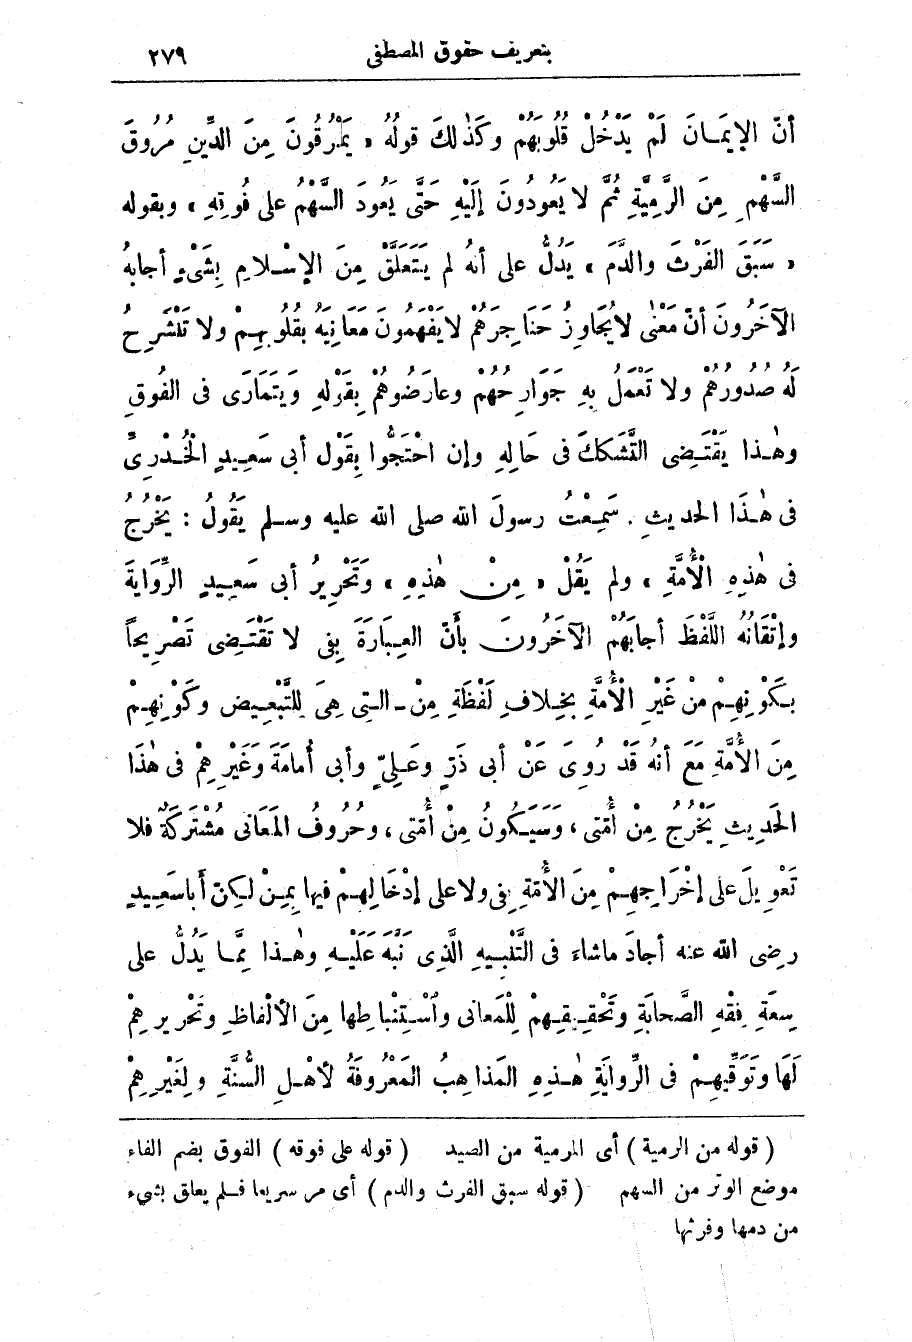 بتعريف حقوق المصطفى ٢٧٩
أنّ الإيمَـانَ لَمْ يَدْخُلْ قُلُوبَهُمْ وكَذٰلِكَ قولُهُ « يَمْرُقُونَ مِنَ الدِّينِ مُرُوقَ
السَّهْمِ مِنَ الرَّمِيَّةِ ثُمَّ لا يَعُودُونَ إِلَيْهِ حَتَّى يَعُودَ السَّهْمُ على فُوقِهِ » وبقوله
« سَبَقَ الفَرْثَ والدَّمَ » يَدُلُّ على أنهُ لم يَتَعَلَّقْ مِنَ الإِسْـلامِ بِشَىْءٍ أجابهُ
الآخَرُونَ أنّ مَعْنٰى لايُجَاوِزُ حَنَاجِرَهُمْ لايَفْهَمُونَ مَعَانِيَهُ بقُلُوبِهِـمْ ولا تَنْشَرِحُ
لَهُ صُدُورُهُمْ ولا تَعْمَلُ بِهِ جَوَارِحُهُمْ وعارَضُوهُمْ بِقَوْلِهِ وَيَتَمَارَى فى الفُوقِ
وهٰـذا يَقْتَـضِى التَّشَككَ فى حَالِهِ وإن احْتَجُّوا بِقَوْل أبى سَعِـيدٍ الْخُـدْرِىِّ
فى هٰـذَا الحديثِ . سَمِـعْتُ رسولَ الله صلى الله عليه وسـلم يَقُولُ : يَخْرُجُ
فى هٰذِهِ الْأُمَّةِ » ولم يَقُلْ « مِنْ هٰذِهِ » وَتَحْرِيرُ أبى سَعِـيدٍ الرِّوَايَةَ
وإتْقَانُهُ اللَّفْظَ أجابَهُمْ الآخَرُونَ بِأنّ العِـبَارَةَ بِفِى لا تَقْتَـضِى تَصْرِيحاً
بِـكَوْنِهِـمْ مِنْ غَيْرِ الْأُمَّةِ بخِـلافِ لَفْظَةِ مِنْ ـ الـتِى هِىَ لِلتَّبْعِـيضِ وكَوْنِهِـمْ
مِنَ الأُمَّةِ مَعَ أنهُ قَدْ رُوِىَ عَنْ أبى ذَرٍّ وعَـلِىٍّ وأبى أُمامَةَ وَغَيْرِهِمْ فى هٰذَا
الحَدِيثِ يَخْرُجُ مِنْ أمَّتى ، وَسَيَـكُونُ مِنْ أُمَّتى ، وحُرُوفُ المَعَانى مُشْتَرَكَةٌ فلا
تَعْوِيلَ على إخْرَاجِهِـمْ مِنَ الأُمَّةِ بِفى ولاعلى إدْخَالِهِـمْ فيها بِمِـنْ لكِنّ أَباسَعِـيدٍ
رضى الله عنه أجادَ ماشاء فى التَّنْبِـيهِ الَّذِى نَبَّهَ عَلَيْـهِ وهٰـذا مِمَّـا يَدُلُّ على
سِعَةِ فِقْهِ الصَّحابَةِ وتَحْقِـيقِـهِمْ لِلْمَعانى واسْتِـنْباطِها مِنَ الألْفاظِ وتَحْرِيرِهِمْ
لَهَا وتَوَقِّيهِـمْ فى الرِّوايَةِ هٰـذِهِ المَذاهِبُ المَعْرُوفَةُ لأهْـلِ السُّنَّةِ ولِغَيْرِهِمْ
( قوله من الرمية ) أى المرمية من الصيد ( قوله على فوقه ) الفوق بضم الفاء
موضع الوتر من السهم ( قوله سبق الفرث والدم ) أى مر سريعا فـلم يعلق بشىء
من دمها وفرثها